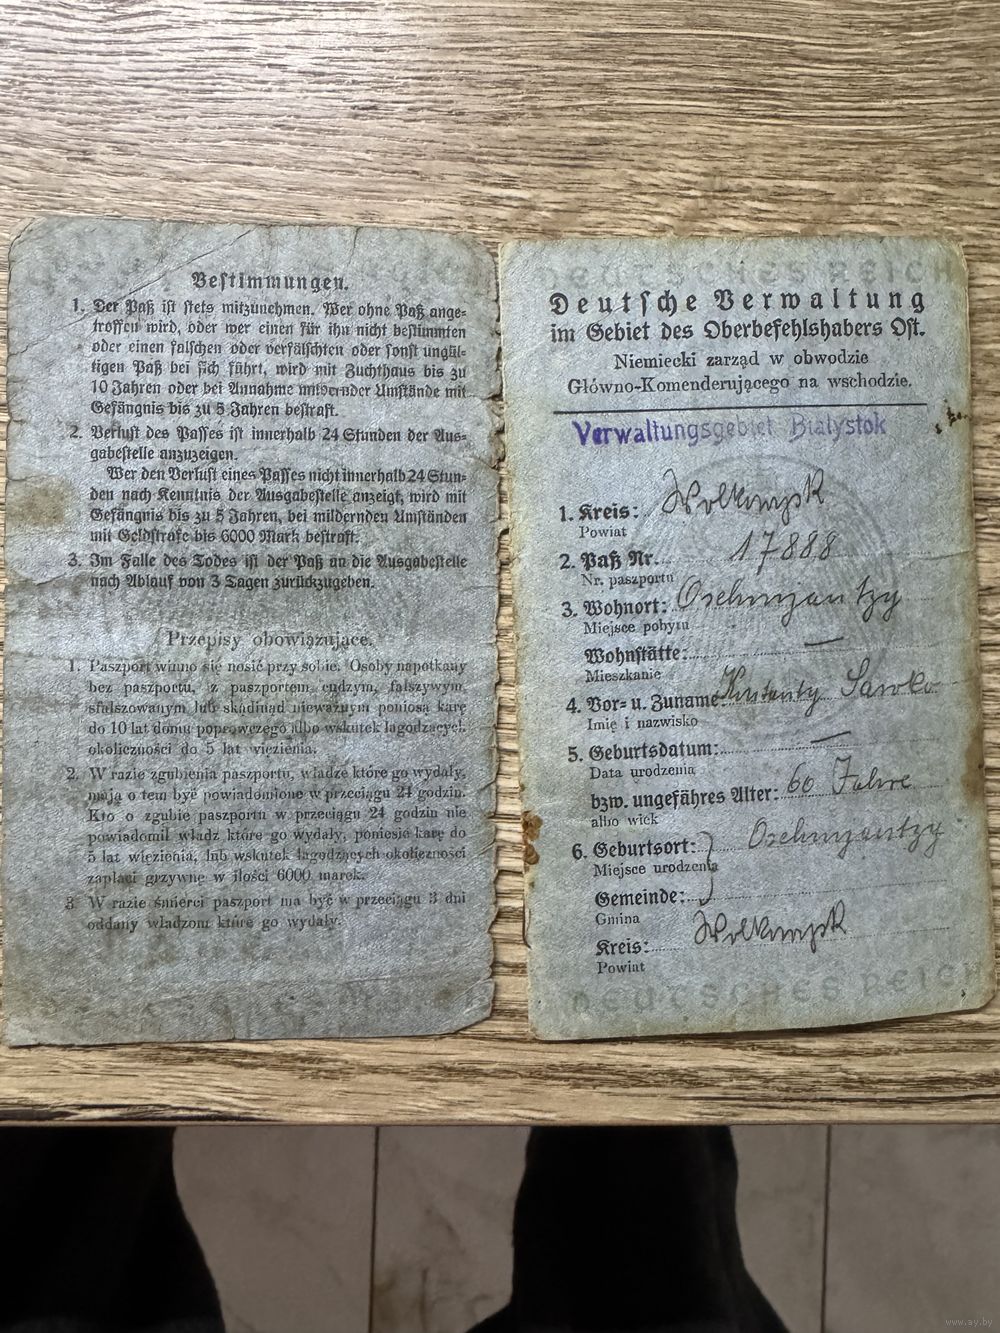 Bestimmungen.
1. Der Paß ist stets mitzunehmen. Wer ohne Paß ange-
troffen wird, oder wer einen für ihn nicht bestimmten
oder einen falschen oder verfälschten oder sonst ungül-
tigen Paß bei sich führt, wird mit Zuchthaus bis zu
10 Jahren oder bei Annahme mildernder Umstände mit
Gefängnis bis zu 5 Jahren bestraft.
2. Verlust des Passes ist innerhalb 24 Stunden der Aus-
gabestelle anzuzeigen.
Wer den Verlust eines Passes nicht innerhalb 24 Stun-
den nach Kenntnis der Ausgabestelle anzeigt, wird mit
Gefängnis bis zu 5 Jahren, bei mildernden Umständen
mit Geldstrafe bis 6000 Mark bestraft.
3. Im Falle des Todes ist der Paß an die Ausgabestelle
nach Ablauf von 3 Tagen zurückzugeben.
Przepisy obowiązujące.
1. Paszport winno się nosić przy sobie. Osoby napotkany
bez paszportu, z paszportem cudzym, fałszywym,
sfałszowanym lub skądinąd nieważnym poniosą karę
do 10 lat domu poprawczego albo wskutek łagodzących
okoliczności do 5 lat więzienia.
2. W razie zgubienia paszportu, władze które go wydały,
mają o tem być powiadomione w przeciągu 24 godzin.
Kto o zgubie paszportu w przeciągu 24 godzin nie
powiadomił władz które go wydały, poniesie karę do
5 lat więzienia, lub wskutek łagodzących okoliczności
zapłaci grzywnę w ilości 6000 marek.
3 W razie śmierci paszport ma być w przeciągu 3 dni
oddany władzom które go wydały.
DEUTSCHES REICH
Deutsche Verwaltung
im Gebiet des Oberbefehlshabers Ost.
Niemiecki zarząd w obwodzie
Główno-Komenderującego na wschodzie.
Verwaltungsgebiet Bialystok
1. Kreis: Wolkowysk
Powiat
2. Paß Nr. 17888
Nr. paszportu
3. Wohnort:
Miejsce pobytu
Wohnstätte: —
Mieszkanie
4. Vor- u. Zuname: Sawko
Imię i nazwisko
5. Geburtsdatum: —
Data urodzenia
bzw. ungefähres Alter: 60 Jahre
albo wiek
6. Geburtsort:
Miejsce urodzenia
Gemeinde:
Gmina
Kreis: Wolkowysk
Powiat
DEUTSCHES REICH
www.ay.by